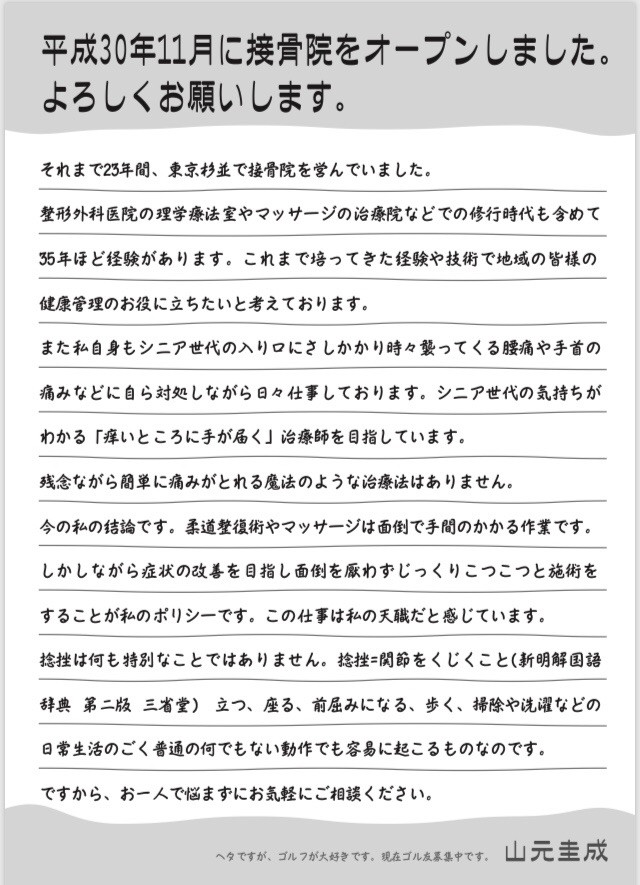 平成30年11月に接骨院をオープンしました。
よろしくお願いします。
それまで23年間、東京杉並で接骨院を営んでいました。
整形外科医院の理学療法室やマッサージの治療院などでの修行時代も含めて
35年ほど経験があります。これまで培ってきた経験や技術で地域の皆様の
健康管理のお役に立ちたいと考えております。
また私自身もシニア世代の入り口にさしかかり時々襲ってくる腰痛や手首の
痛みなどに自ら対処しながら日々仕事しております。シニア世代の気持ちが
わかる「痒いところに手が届く」治療師を目指しています。
残念ながら簡単に痛みがとれる魔法のような治療法はありません。
今の私の結論です。柔道整復術やマッサージは面倒で手間のかかる作業です。
しかしながら症状の改善を目指し面倒を厭わずじっくりこつこつと施術を
することが私のポリシーです。この仕事は私の天職だと感じています。
捻挫は何も特別なことではありません。捻挫=関節をくじくこと(新明解国語
辞典 第二版 三省堂) 立つ、座る、前屈みになる、歩く、掃除や洗濯などの
日常生活のごく普通の何でもない動作でも容易に起こるものなのです。
ですから、お一人で悩まずにお気軽にご相談ください。
ヘタですが、ゴルフが大好きです。現在ゴル友募集中です。 山元圭成